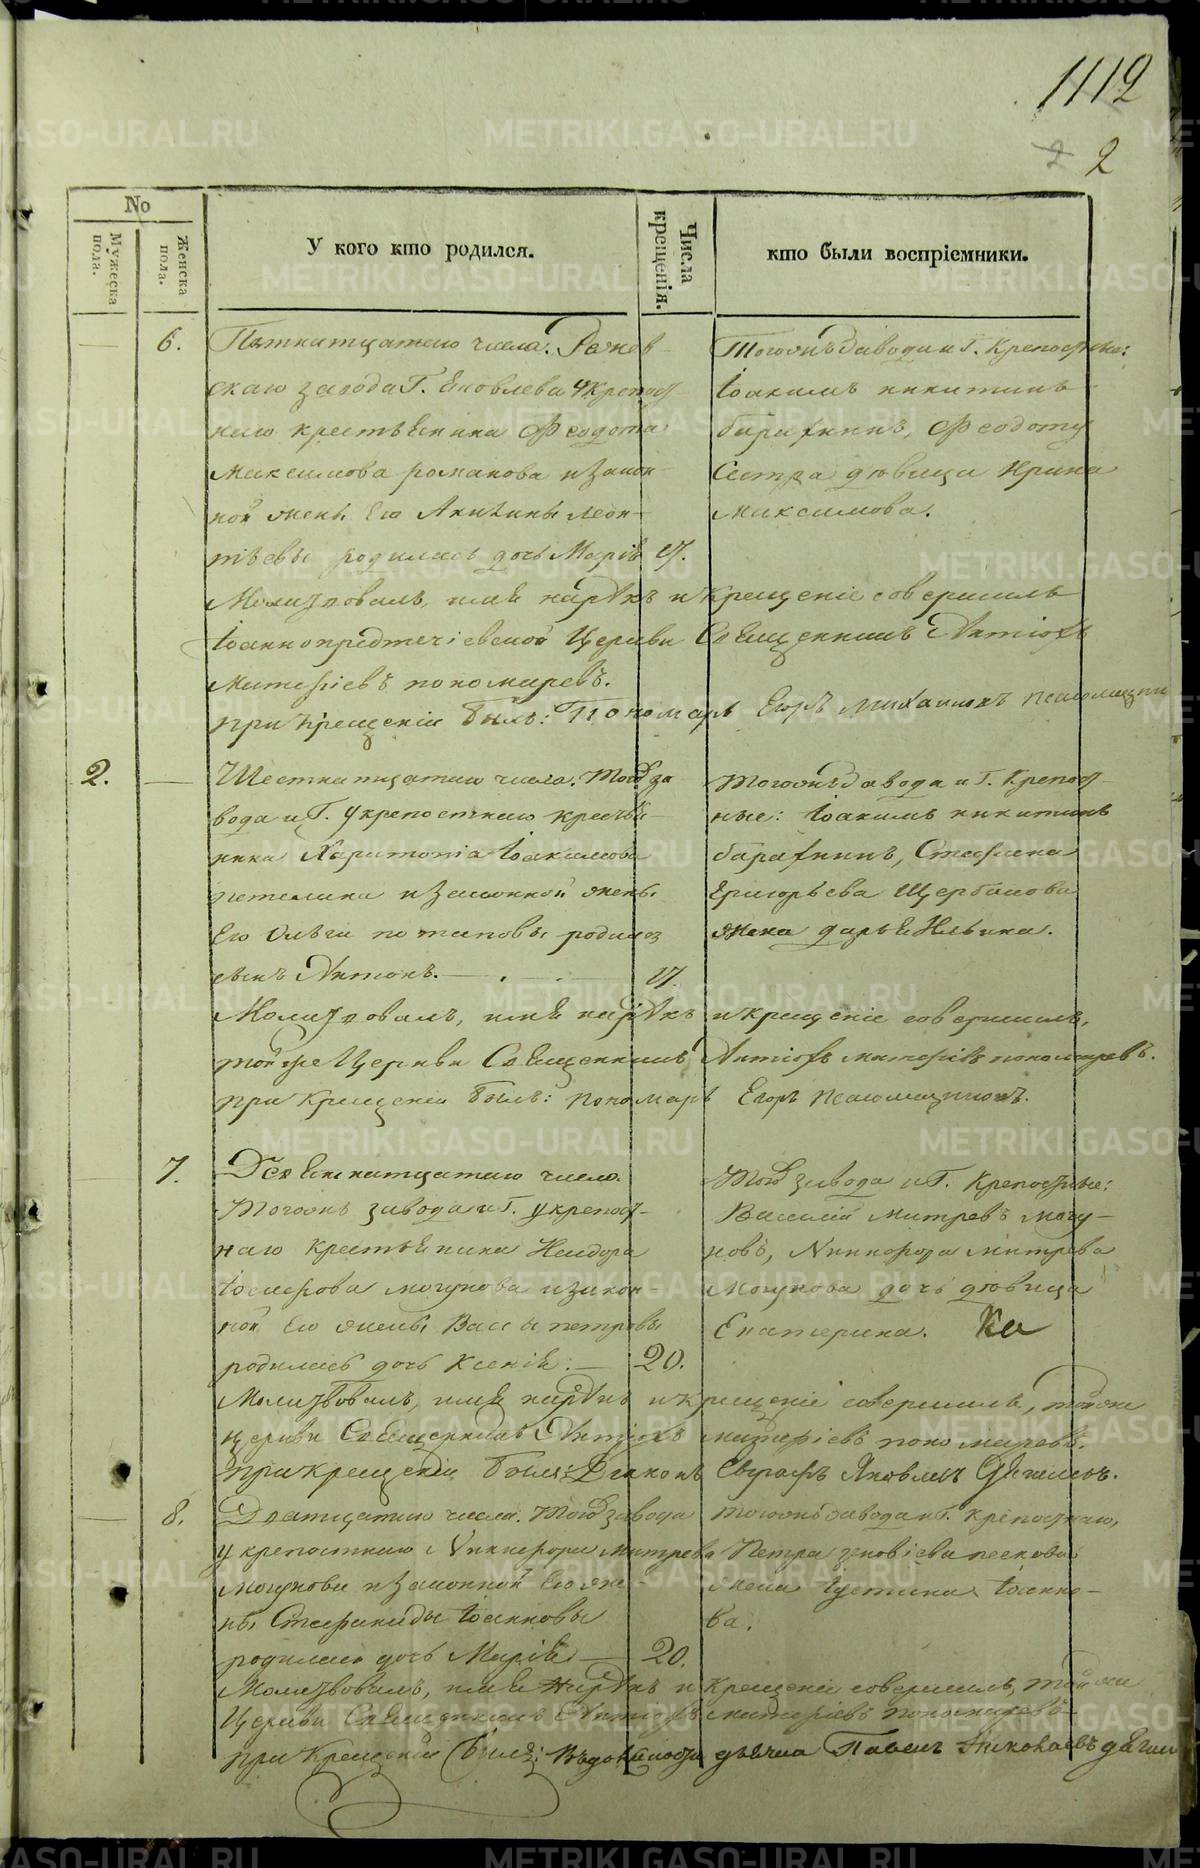 1112
2 2
No
Мужеска пола.
Женска пола.
У кого кто родился.
Числа крещенія.
кто были воспріемники.
6. Пятнатцатаго числа. Режев
скаго завода Г. Яковлева у крепост
наго крестьянина Феодота
Максимова романова и закон
ной жены его Акилины леон
тьевы родилась дочь Марія 17.
Тогожъ завода и Г. Крепостные:
Іоакимъ никитинъ
Феодоту
Сестра девица Ирина
максимова.
Молитвовалъ, имя нарекъ и крещеніе совершилъ
Іоаннопредтечіевской Церкви Священникъ Антіохъ
митеріевъ пономаревъ.
при крещеніи былъ: Пономарь Егоръ
2. Шестнатцатаго числа. Тогожъ за
вода и Г. у крепостнаго крестья
нина Харитонія Іоакимова
и законной жены
Его Ольги потаповы родился
сынъ Антонъ. 17.
Тогожъ завода и Г. Крепост
ные: Іоакимъ никитинъ
Стефана
Григорьева Щербакова
жена дарья Ильина.
Молитвовалъ, имя нарекъ и крещеніе совершилъ,
тойже Церкви Священникъ Антіохъ митеріевъ пономаревъ.
при крещеніи былъ: пономарь Егоръ
7. Девятнатцатаго числа.
Тогожъ завода и Г. у крепост
наго крестьянина Исидора
Іосифова могунова и закон
ной его жены Вассы петровы
родилась дочь Ксенія. 20.
Тогожъ завода и Г. Крепостные:
Василій митревъ могу
новъ, Никифора митрева
могунова дочь девица
Екатерина.
Молитвовалъ, имя нарекъ и крещеніе совершилъ, тойже
церкви Священникъ Антіохъ митеріевъ пономаревъ.
при крещеніи былъ: Діаконъ Евграфъ Яковлевъ
8. Дватцатаго числа. Тогожъ завода
у крепостнаго Никифора митрева
могунова и законной его же
ны Стефаниды Іоанновы
родилась дочь Марія 20.
Тогожъ завода и Г. крепостнаго,
Петра зиновіева пескова
жена Іустина Іоанно
ва.
Молитвовалъ, имя нарекъ и крещеніе совершилъ, тойже
Церкви Священникъ Антіохъ митеріевъ пономаревъ
при Крещеніи былъ: дьячка Павелъ Николаевъ
METRIKI.GASO-URAL.RU